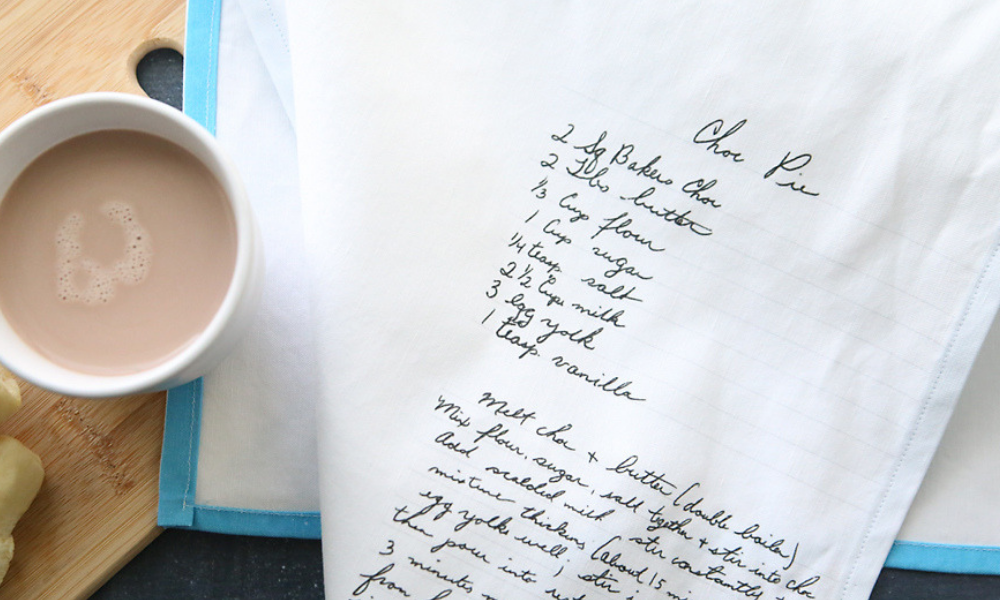 Choc Pie
2 Sq Bakers Choc
2 Tbs butter
1/3 Cup flour
1 Cup sugar
1/4 teasp. salt
2 1/2 Cups milk
3 egg yolk
1 teasp. vanilla
Melt choc + butter (double boiler)
Mix flour, sugar, salt together + stir into choc
Add scalded milk stir constantly
mixture thickens (about 15
egg yolks well, stir
then pour into
3 minutes
from